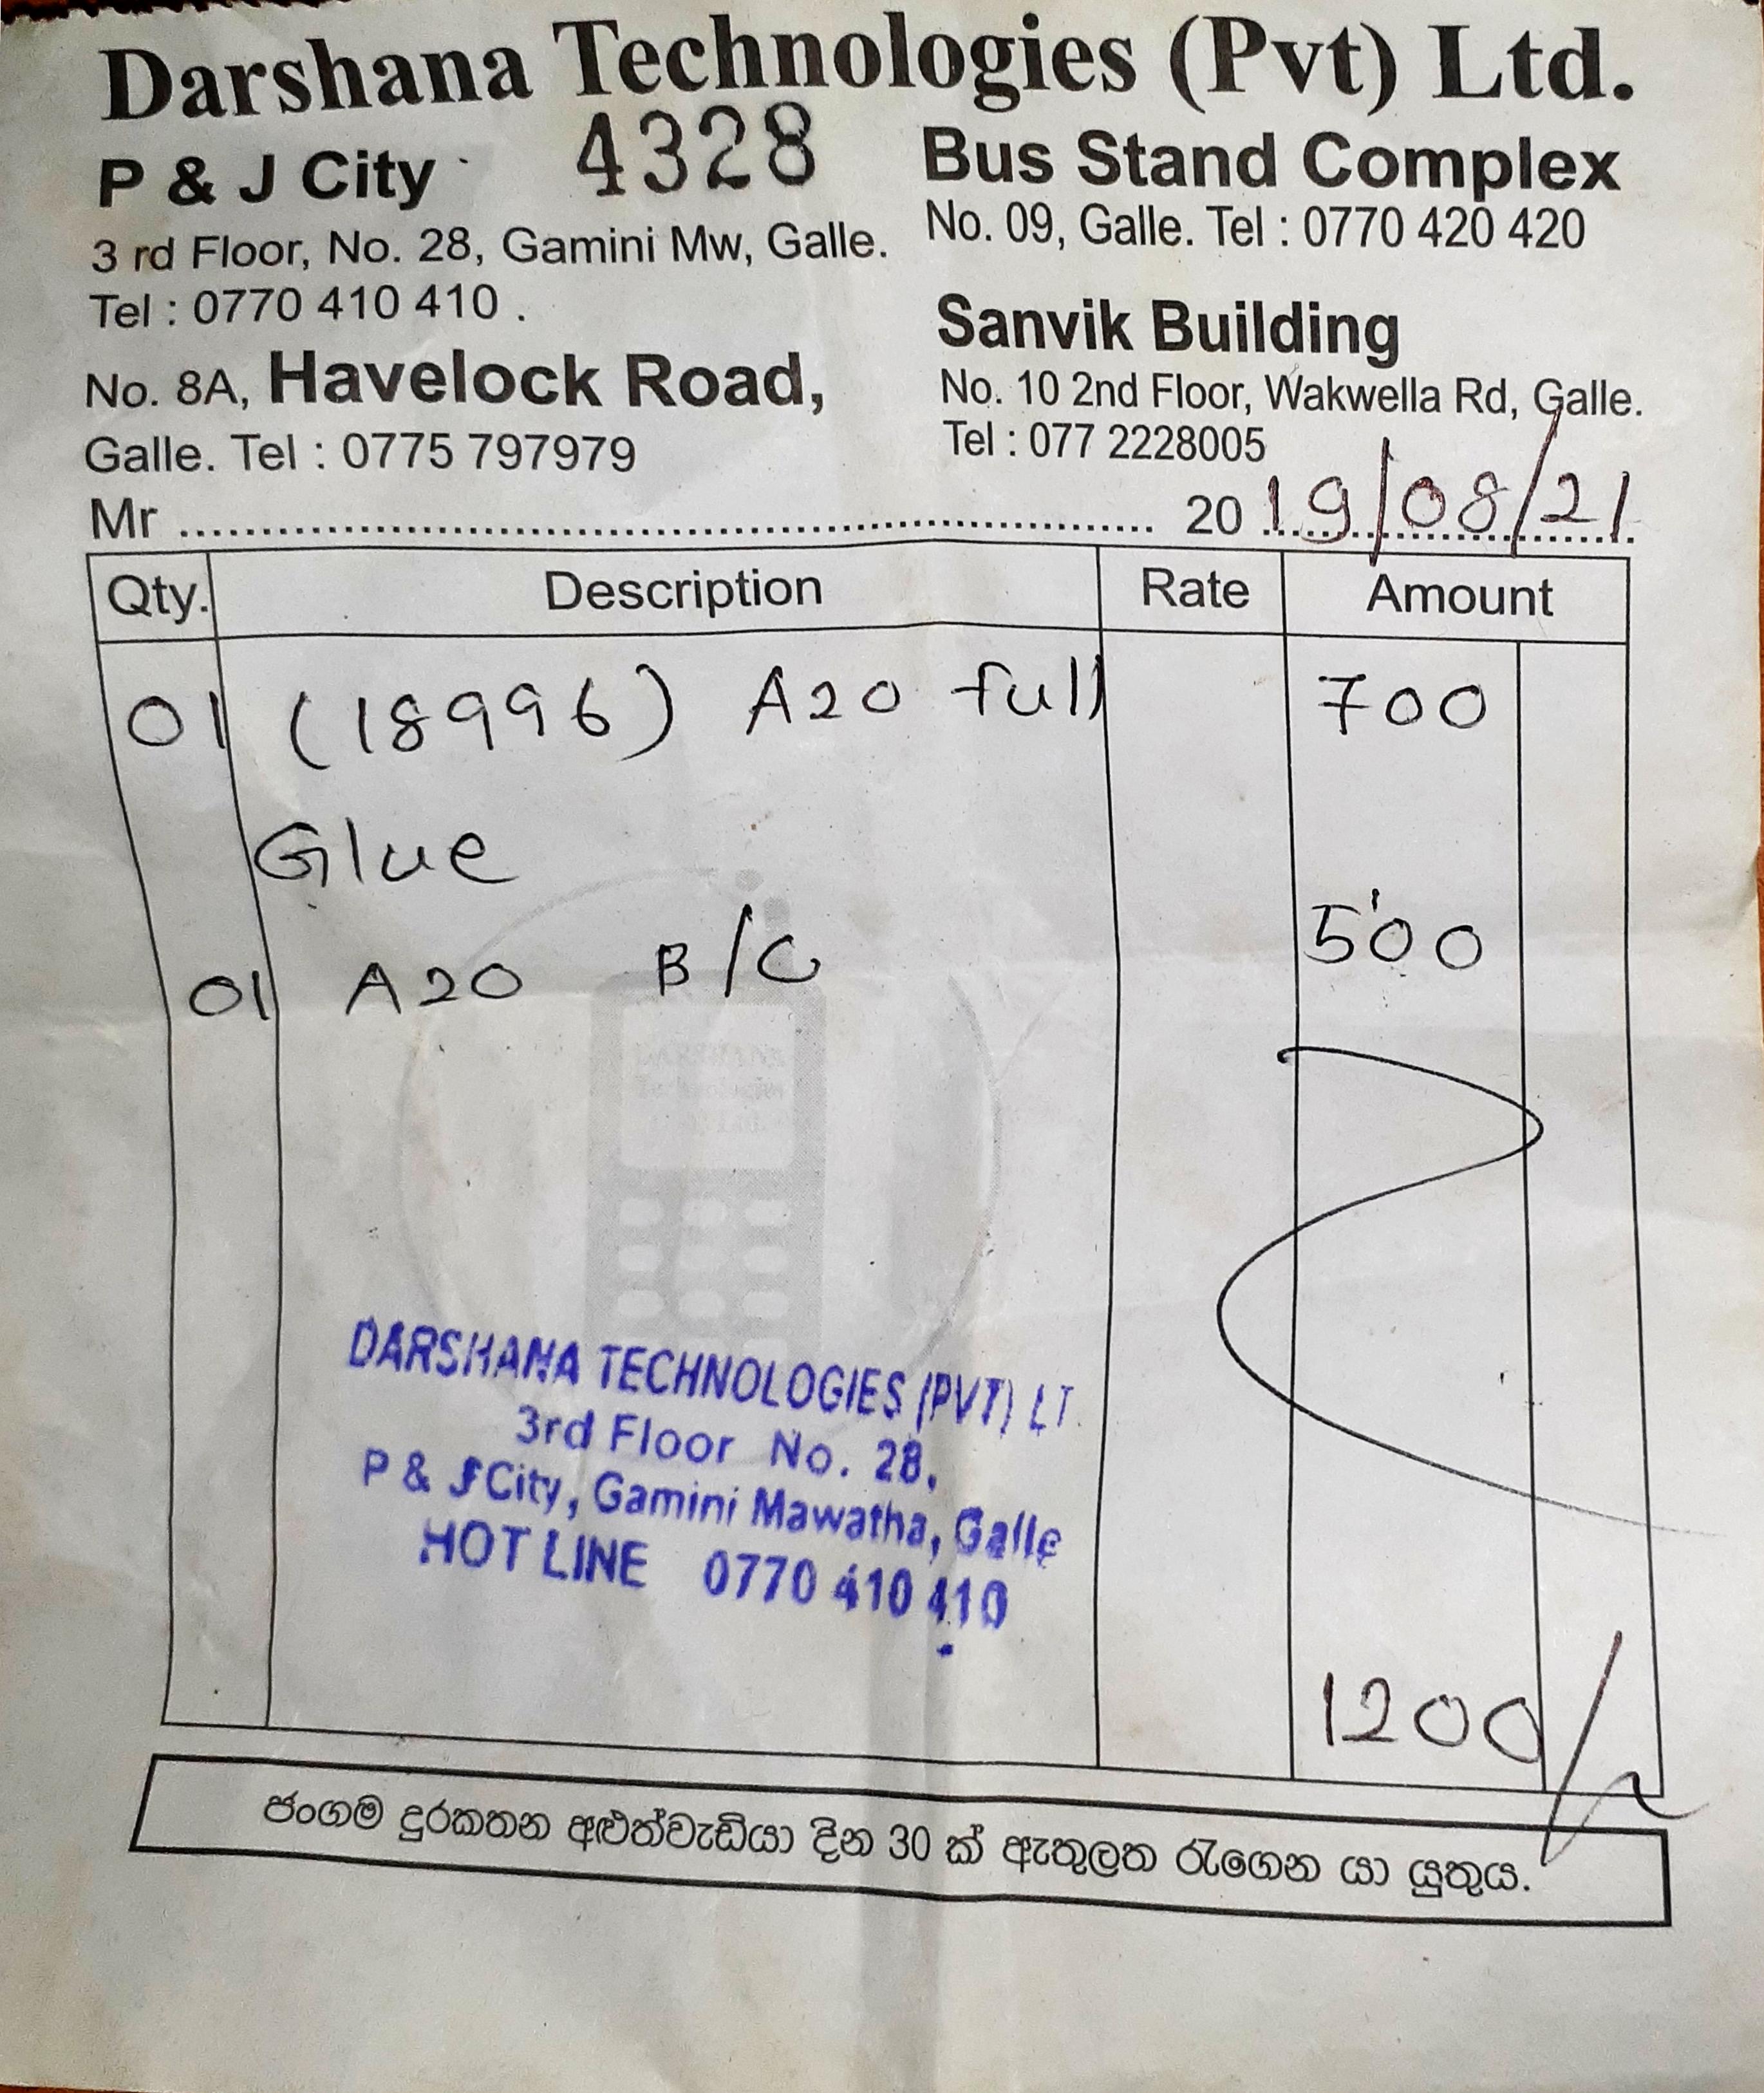 Darshana Technologies (Pvt) Ltd.
4328
P & J City
3 rd Floor, No. 28, Gamini Mw, Galle.
Tel : 0770 410 410 .
No. 8A, Havelock Road,
Galle. Tel : 0775 797979
Bus Stand Complex
No. 09, Galle. Tel : 0770 420 420
Sanvik Building
No. 10 2nd Floor, Wakwella Rd, Galle.
Tel : 077 2228005
Mr ........................ 20 19/08/21
Qty. Description Rate Amount
01 (18996) A20 full 700
Glue
01 A20 B/C 500
DARSHANA TECHNOLOGIES (PVT) LT
3rd Floor No. 28,
P & J City, Gamini Mawatha, Galle
HOT LINE 0770 410 410
1200/
ජංගම දුරකතන අළුත්වැඩියා දින 30 ක් ඇතුලත රැගෙන යා යුතුය.